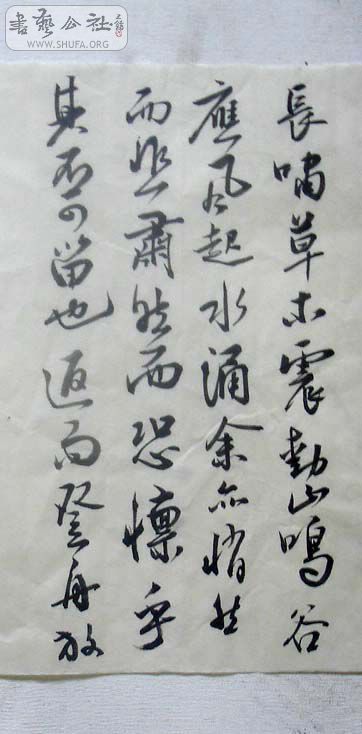 書藝公社
WWW.SHUFA.ORG
長嘯草木震動山鳴谷
應風起水涌余亦悄然
而悲肅然而恐懍乎
其不可留也返而登舟放